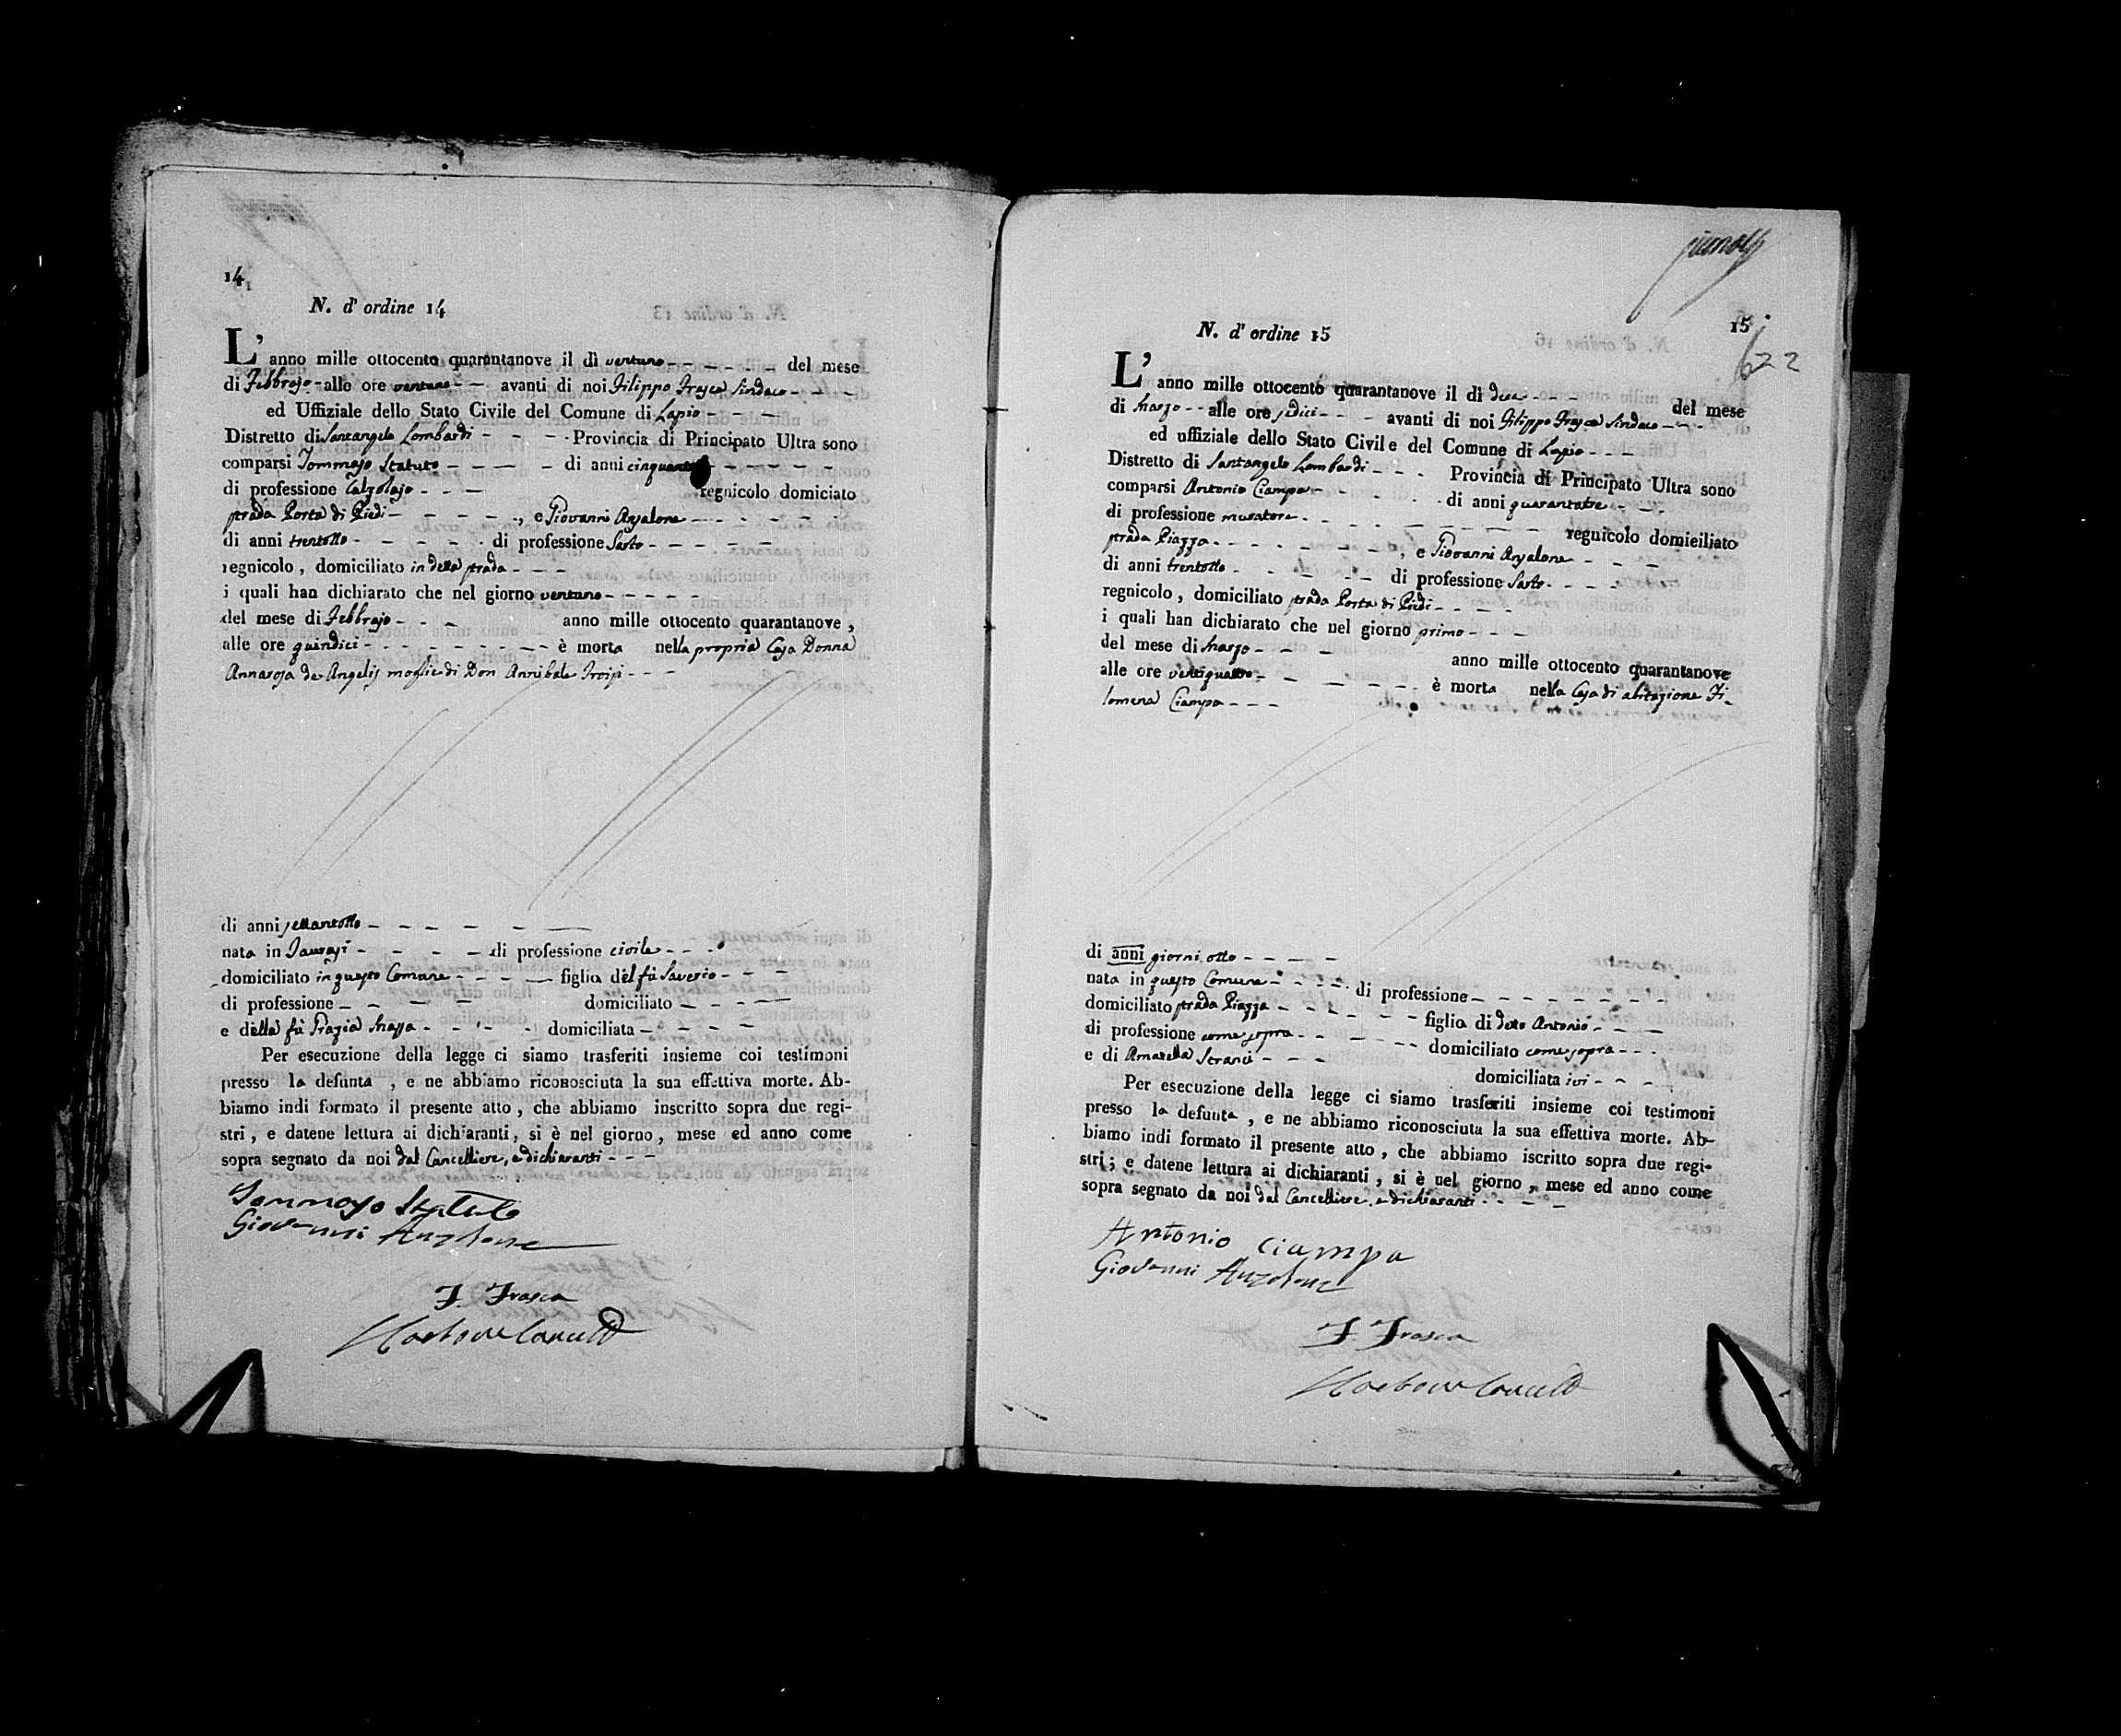 14
N. d' ordine 14
L' anno mille ottocento quarantanove il dì ventuno - - - - - - del mese
di Febbrajo - alle ore ventuno - - avanti di noi Filippo Frasca Sindaco - - -
ed Uffiziale dello Stato Civile del Comune di Lapio - - -
Distretto di Santangelo Lombardi - - - - Provincia di Principato Ultra sono
comparsi Tommaso Statuto - - - - - di anni cinquanta - - - - -
di professione Calzolajo - - - regnicolo domiciato
strada Porta di Piedi - - - - - , e Giovanni Anzalone - - - - - -
di anni trentotto - - - - - di professione Sarto - - - - -
regnicolo , domiciliato in detta strada - - -
i quali han dichiarato che nel giorno ventuno - - - - -
del mese di Febbrajo - - - anno mille ottocento quarantanove ,
alle ore quindici - - - - - - - - è morta nella propria Casa Donna
Annarosa de Angelis moglie di Don Annibale Troisi - - -
di anni settantotto - - - - - -
nata in Taurasi - - - - - di professione civile - - -
domiciliato in questo Comune - - - - figlia del fù Saverio - - -
di professione - - - - domiciliato - - - -
e della fù Grazia Massa - - - - - domiciliata - - - - -
Per esecuzione della legge ci siamo trasferiti insieme coi testimoni
presso la defunta , e ne abbiamo riconosciuta la sua effettiva morte. Ab-
biamo indi formato il presente atto , che abbiamo inscritto sopra due regi-
stri , e datene lettura ai dichiaranti , si è nel giorno , mese ed anno come
sopra segnato da noi dal Cancelliere, e dichiaranti - - -
Tommaso Statuto
Giovanni Anzalone
F. Frasca
15
622
N. d' ordine 15
L' anno mille ottocento quarantanove il dì due - - - - del mese
di Marzo - - alle ore sedici - - - avanti di noi Filippo Frasca Sindaco - - -
ed uffiziale dello Stato Civile del Comune di Lapio - - -
Distretto di Santangelo Lombardi - - - Provincia di Principato Ultra sono
comparsi Antonio Ciampa - - - - - - di anni quarantatre - - -
di professione muratore - - - - - - - - - regnicolo domieiliato
strada Piazza - - - - - - - - , e Giovanni Anzalone - - -
di anni trentotto - - - - - - di professione Sarto - - - -
regnicolo , domiciliato strada Porta di Piedi - - -
i quali han dichiarato che nel giorno primo - - -
del mese di Marzo - - - anno mille ottocento quarantanove
alle ore ventiquattro - - - - - - è morta nella Casa di abitazione Fi-
lomena Ciampa - - -
di anni giorni otto - - - - -
nata in questo Comune - - - - di professione - - - - - - - -
domiciliato strada Piazza - - - - - - figlia di detto Antonio - - - -
di professione come sopra - - - - - - domiciliato come sopra - - -
e di - - - domiciliata ivi - - -
Per esecuzione della legge ci siamo trasferiti insieme coi testimoni
presso la defunta , e ne abbiamo riconosciuta la sua effettiva morte. Ab-
biamo indi formato il presente atto , che abbiamo iscritto sopra due regi-
stri ; e datene lettura ai dichiaranti , si è nel giorno , mese ed anno come
sopra segnato da noi dal Cancelliere, e dichiaranti - - - -
Antonio Ciampa
Giovanni Anzalone
F. Frasca